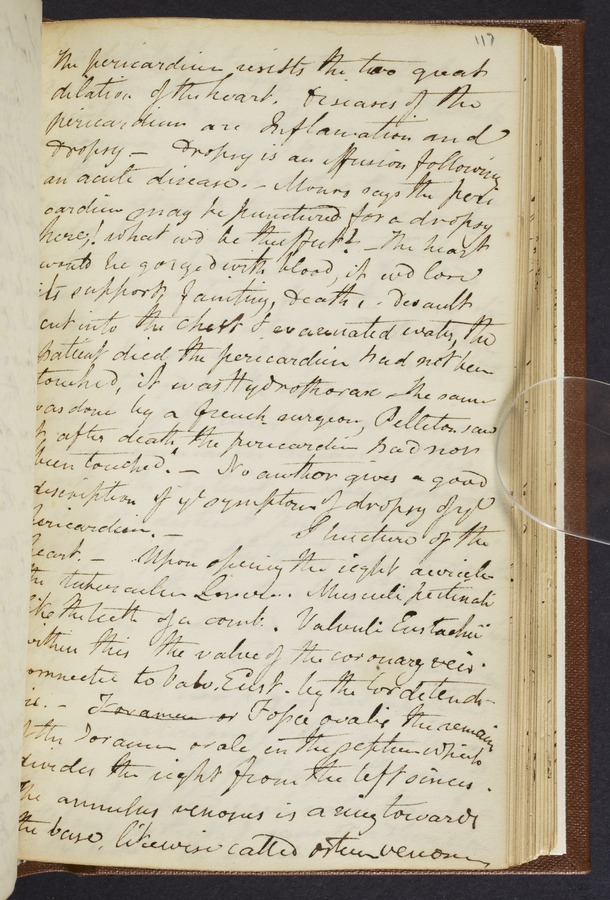 117
The pericardium resists the two great
dilation of the heart. Diseases of the
pericardium are Inflamation and
Dropsy – Dropsy is an effusion following
an acute disease. – Monro says the peri
cardium may be punctured for a dropsy
here! what wd be the effect? – The heart
would be gorged with blood, it wd lose
its support, fainting, Death. Desault
cut into the chest & evacuated water, the
patient died the pericardium had not been
touched, it was Hydrothorax – The same
was done by a french surgeon, Pelleton saw
after death the pericardium had not
been touched! – No author gives a good
description of ye symptoms of dropsy of ye
Pericardium. – Structure of the
heart. – Upon opening the right auricle
the tuberculum Loweri. Musculi pectinati
like the teeth of a comb. Valvuli Eustachii
within this the valve of the coronary vein
connected to Valv. Eust. by the
– Foramen or Fossa ovalis the remains
of the Foramen ovale in the septum which
divides the right from the left sinus.
The annulus venosus is a ring towards
the base, likewise called ostium venosum